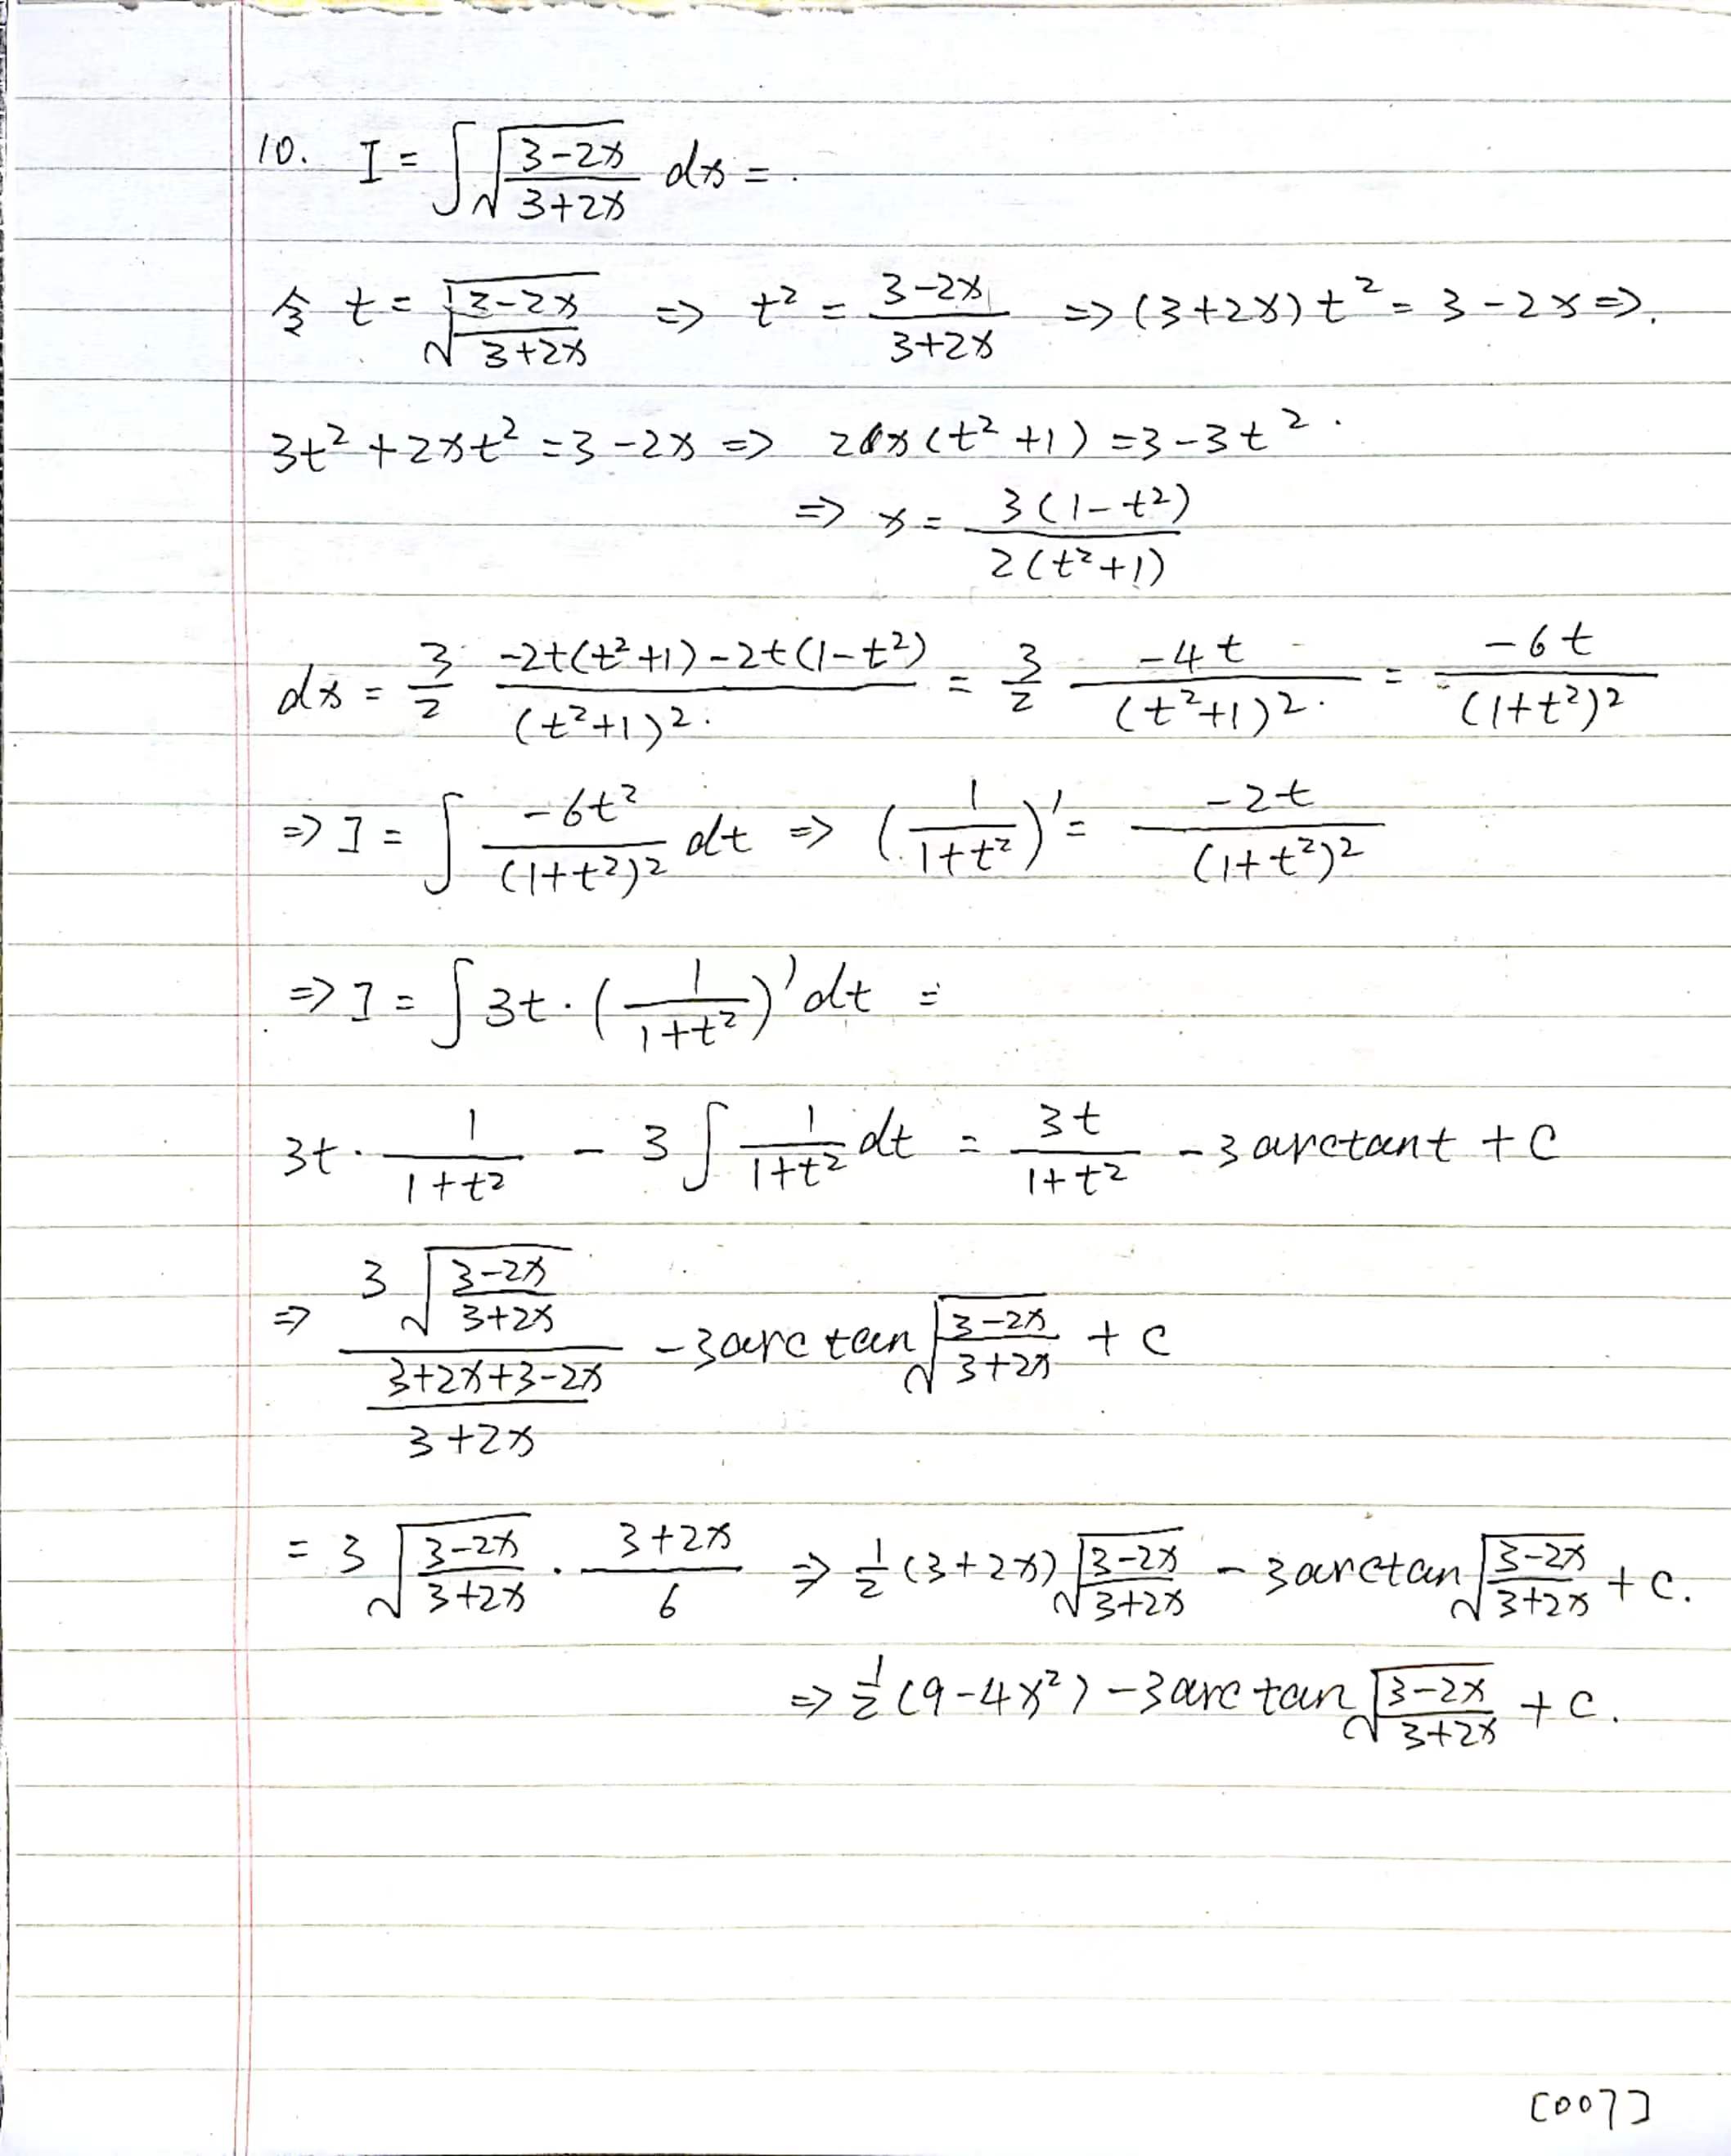 10. I = ∫√((3-2x)/(3+2x)) dx = .
令 t = √((3-2x)/(3+2x)) => t² = (3-2x)/(3+2x) => (3+2x)t² = 3-2x =>.
3t²+2xt² = 3-2x => 2x(t²+1) = 3-3t².
=> x = 3(1-t²)/(2(t²+1))
dx = 3/2 (-2t(t²+1)-2t(1-t²))/(t²+1)². = 3/2 (-4t)/(t²+1)². = -6t/(1+t²)²
=> I = ∫ -6t²/(1+t²)² dt => (1/(1+t²))' = -2t/(1+t²)²
=> I = ∫3t·(1/(1+t²))'dt =
3t·1/(1+t²) - 3∫1/(1+t²) dt = 3t/(1+t²) - 3arctant + C
=> (3√((3-2x)/(3+2x)))/((3+2x+3-2x)/(3+2x)) - 3arctan√((3-2x)/(3+2x)) + C
= 3√((3-2x)/(3+2x))·(3+2x)/6 => 1/2(3+2x)√((3-2x)/(3+2x)) - 3arctan√((3-2x)/(3+2x)) + C.
=> 1/2(9-4x²) - 3arctan√((3-2x)/(3+2x)) + C.
[007]